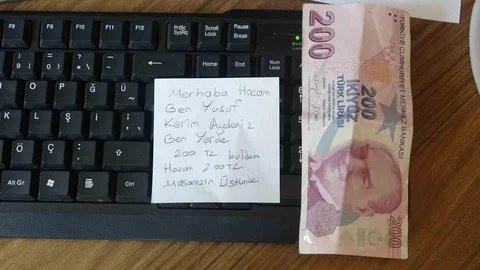 F8
F9
F10
F11
F12
PrtSc
SysRq
Scroll
Lock
Pause
Break
Home
End
Num
Lock
Ğ
Ü
Ş
Ö
Ç
Alt Gr
Ctrl
Merhaba Hocam
Ben Yusuf
Kerim Aydeniz
Ben Yerde
200 TL buldum
Hocam 200 TL
Masanızın Üstünde
200
TÜRKİYE CUMHURİYET MERKEZ BANKASI
200
İKİYÜZ
TÜRK LİRASI
200